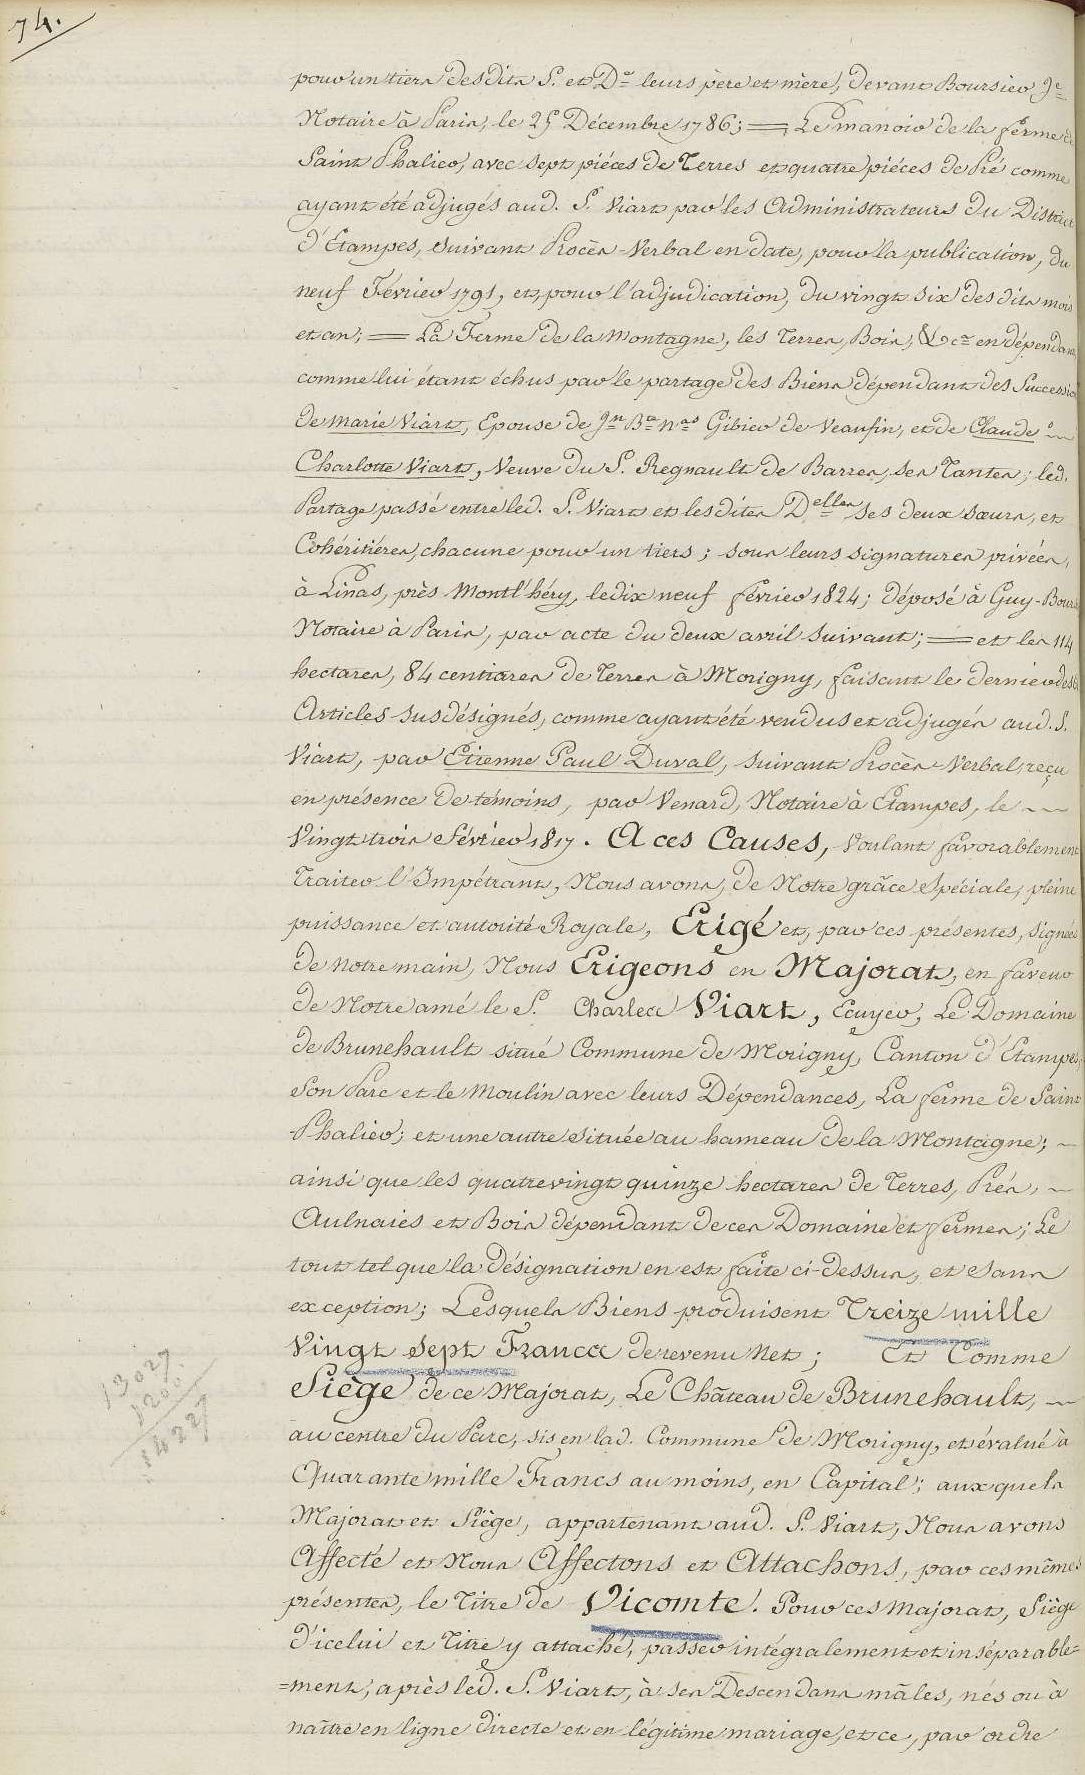 74.
pour un tiers des dits S. et De leurs père et mère, devant Boursier Je
Notaire à Paris, le 25 Décembre 1786; = Le manoir de la ferme de
Saint Phalier, avec sept piéces de Terres et quatre piéces de Pré comme
ayant été adjugés aud. S. Viart par les Administrateurs du District
d'Etampes, suivant Procès-Verbal en date, pour la publication, du
neuf Février 1791, et, pour l'adjudication, du vingt six des dits mois
et an; = La Ferme de la Montagne, les Terres, Bois, &ca en dépendant,
comme lui étant échus par le partage des Biens dépendant des Succession
de Marie Viart, Epouse de Jn Bte Nas Gibier de Veaufin, et de Claude
Charlotte Viart, Veuve du S. Regnault de Barres, ses Tantes; led.
Partage passé entre led. S. Viart et les dites Delles ses deux sœurs, et
Cohéritières, chacune pour un tiers; sous leurs signatures privées,
à Linas, près Montl'héry, le dix neuf février 1824; déposé à Guy-Bours
Notaire à Paris, par acte du deux avril suivant; = et les 114
hectares, 84 centiares de Terres à Morigny, faisant le dernier des
Articles susdésignés, comme ayant été vendus et adjugés aud. S.
Viart, par Etienne Paul Duval, suivant Procès-Verbal, reçu
en présence de témoins, par Venard, Notaire à Etampes, le
Vingt trois Février 1817. A ces Causes, voulant favorablement
Traiter l'Impétrant, Nous avons, de Notre grâce Spéciale, pleine
puissance et autorité Royale, Erigé et, par ces présentes, signées
de notre main, Nous Erigeons en Majorat, en faveur
de Notre amé le S. Charles Viart, Ecuyer, Le Domaine
de Brunehault situé Commune de Morigny, Canton d'Etampes,
Son Parc et le Moulin avec leurs Dépendances, La ferme de Saint
Phalier; et une autre située au hameau de la Montagne;
ainsi que les quatrevingt quinze hectares de Terres, Prés,
Aulnaies et Bois dépendant de ces Domaine et fermes; Le
tout tel que la désignation en est faite ci-dessus, et sans
exception; Lesquels Biens produisent Treize mille
Vingt Sept Francs de revenu Net; Et Comme
Siège de ce Majorat, Le Château de Brunehault,
au centre du Parc, sis en lad. Commune de Morigny, et évalué à
Quarante mille Francs au moins, en Capital; auxquels
Majorat et Siège, appartenant aud. S. Viart, Nous avons
Affecté et Nous Affectons et Attachons, par ces mêmes
présentes, le Titre de Vicomte. Pour ces Majorat, Siège
d'icelui et Titre y attaché, passer intégralement et inséparable=
=ment, après led. S. Viart, à ses Descendans mâles, nés ou à
naître en ligne directe et en légitime mariage, et ce, par ordre
13027
1200
14227